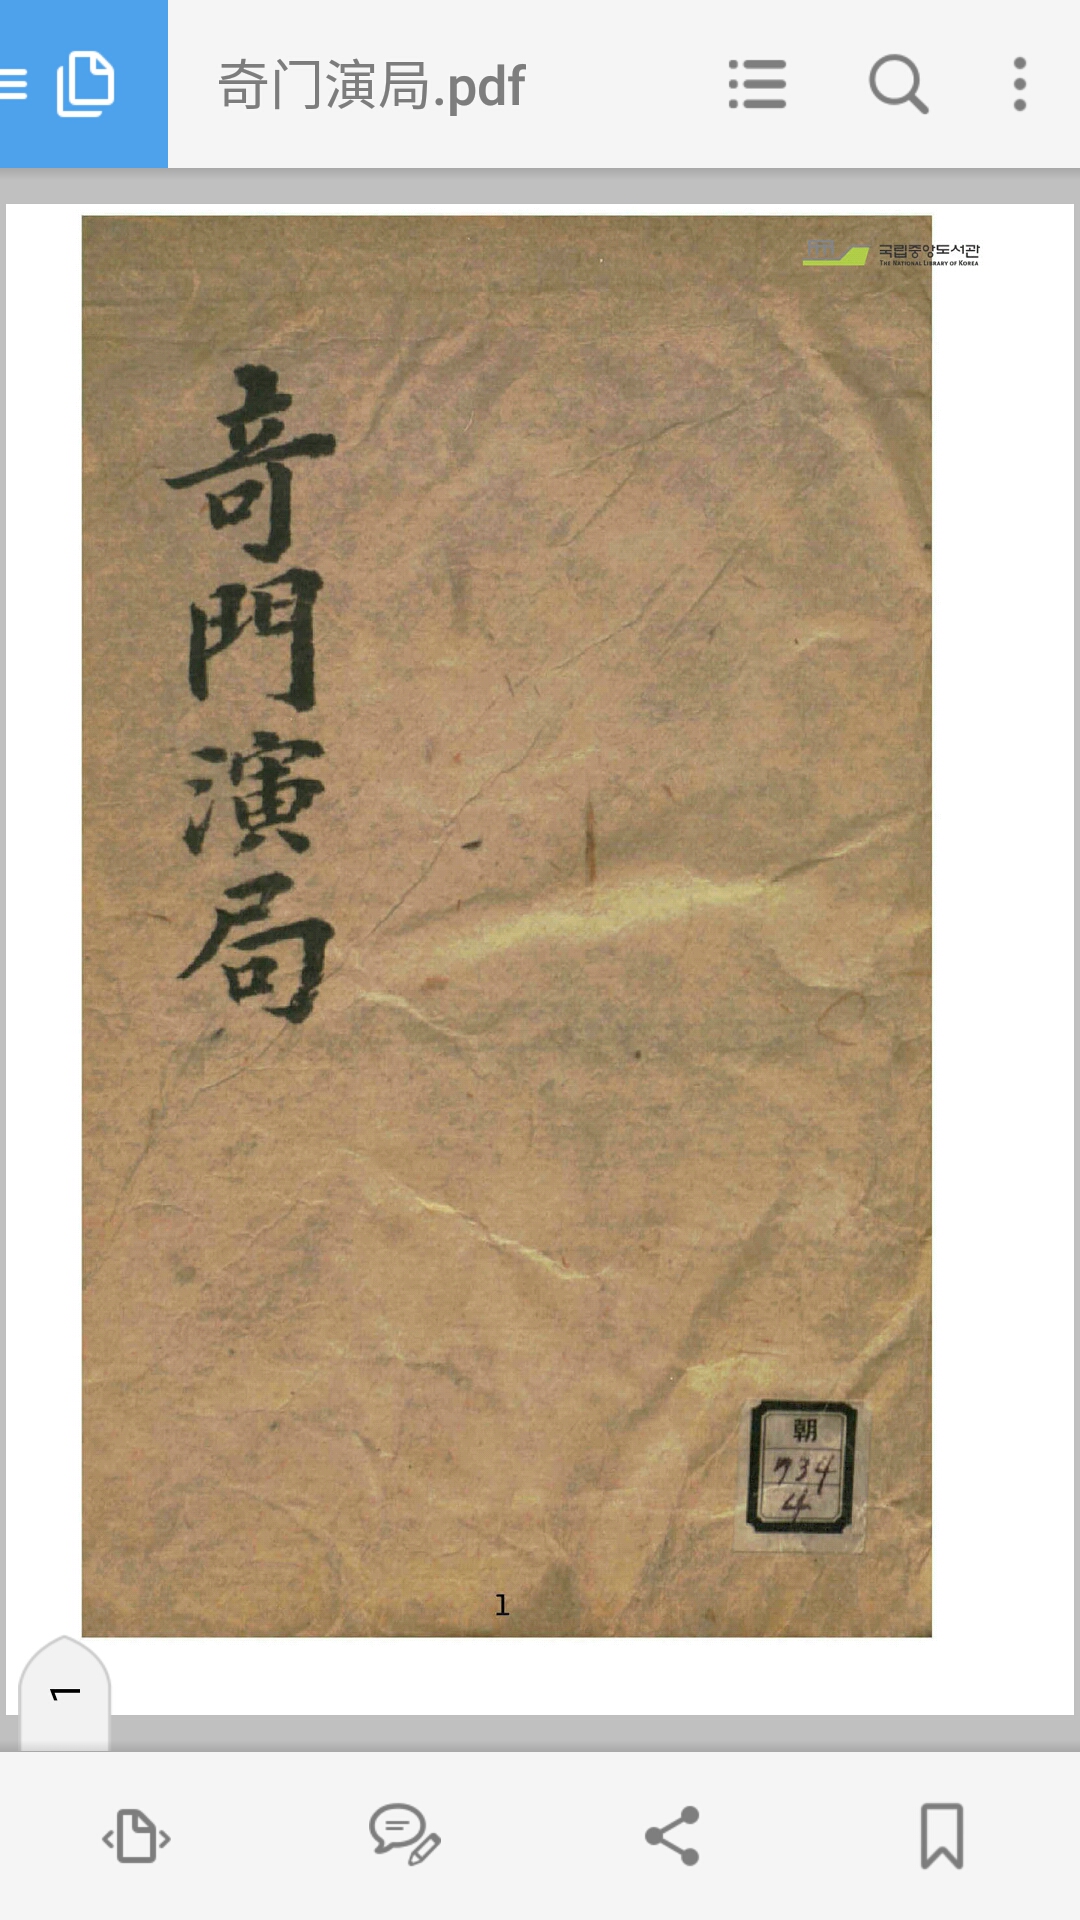 奇门演局.pdf
국립중앙도서관
THE NATIONAL LIBRARY OF KOREA
奇門演局
朝
734
4
1
1